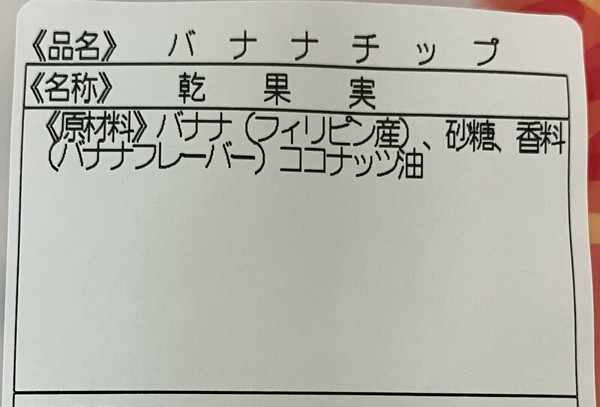 《品名》 バナナチップ
《名称》 乾果実
《原材料》バナナ（フィリピン産）、砂糖、香料
（バナナフレーバー）ココナッツ油